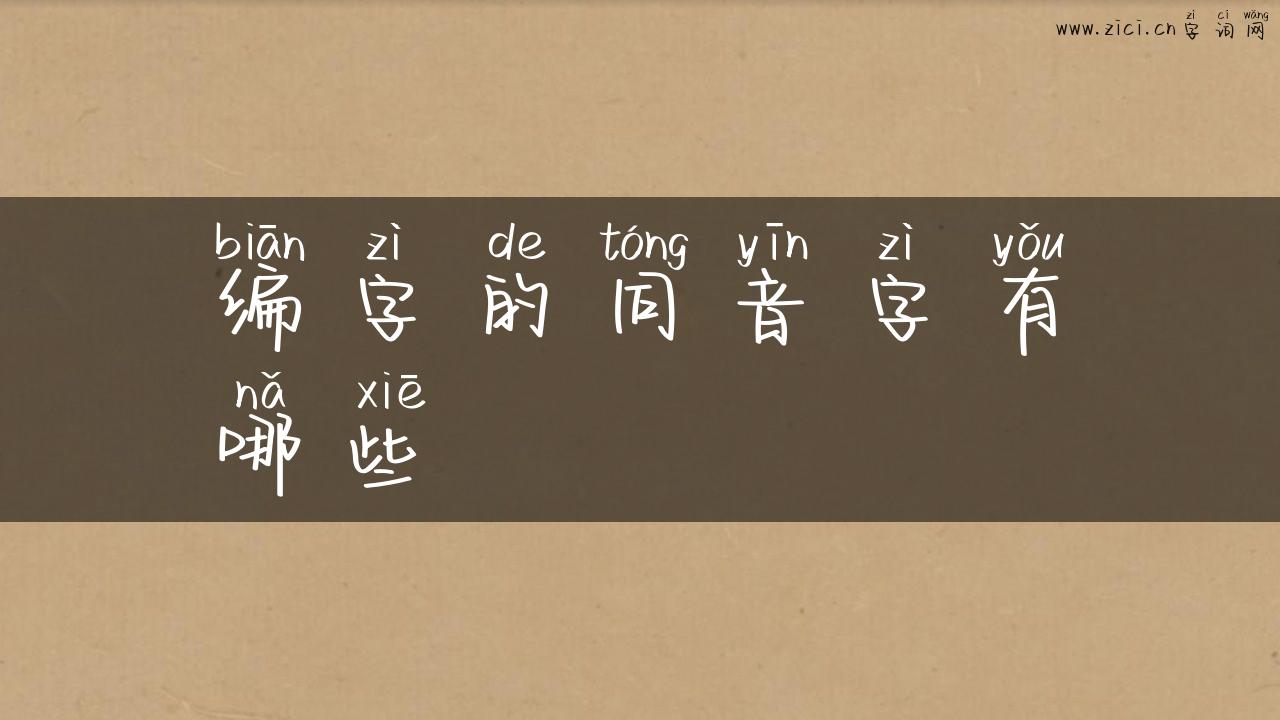 zì cí wǎng
www.zici.cn 字词网
biān zì de tóng yīn zì yǒu
编字的同音字有
nǎ xiē
哪些